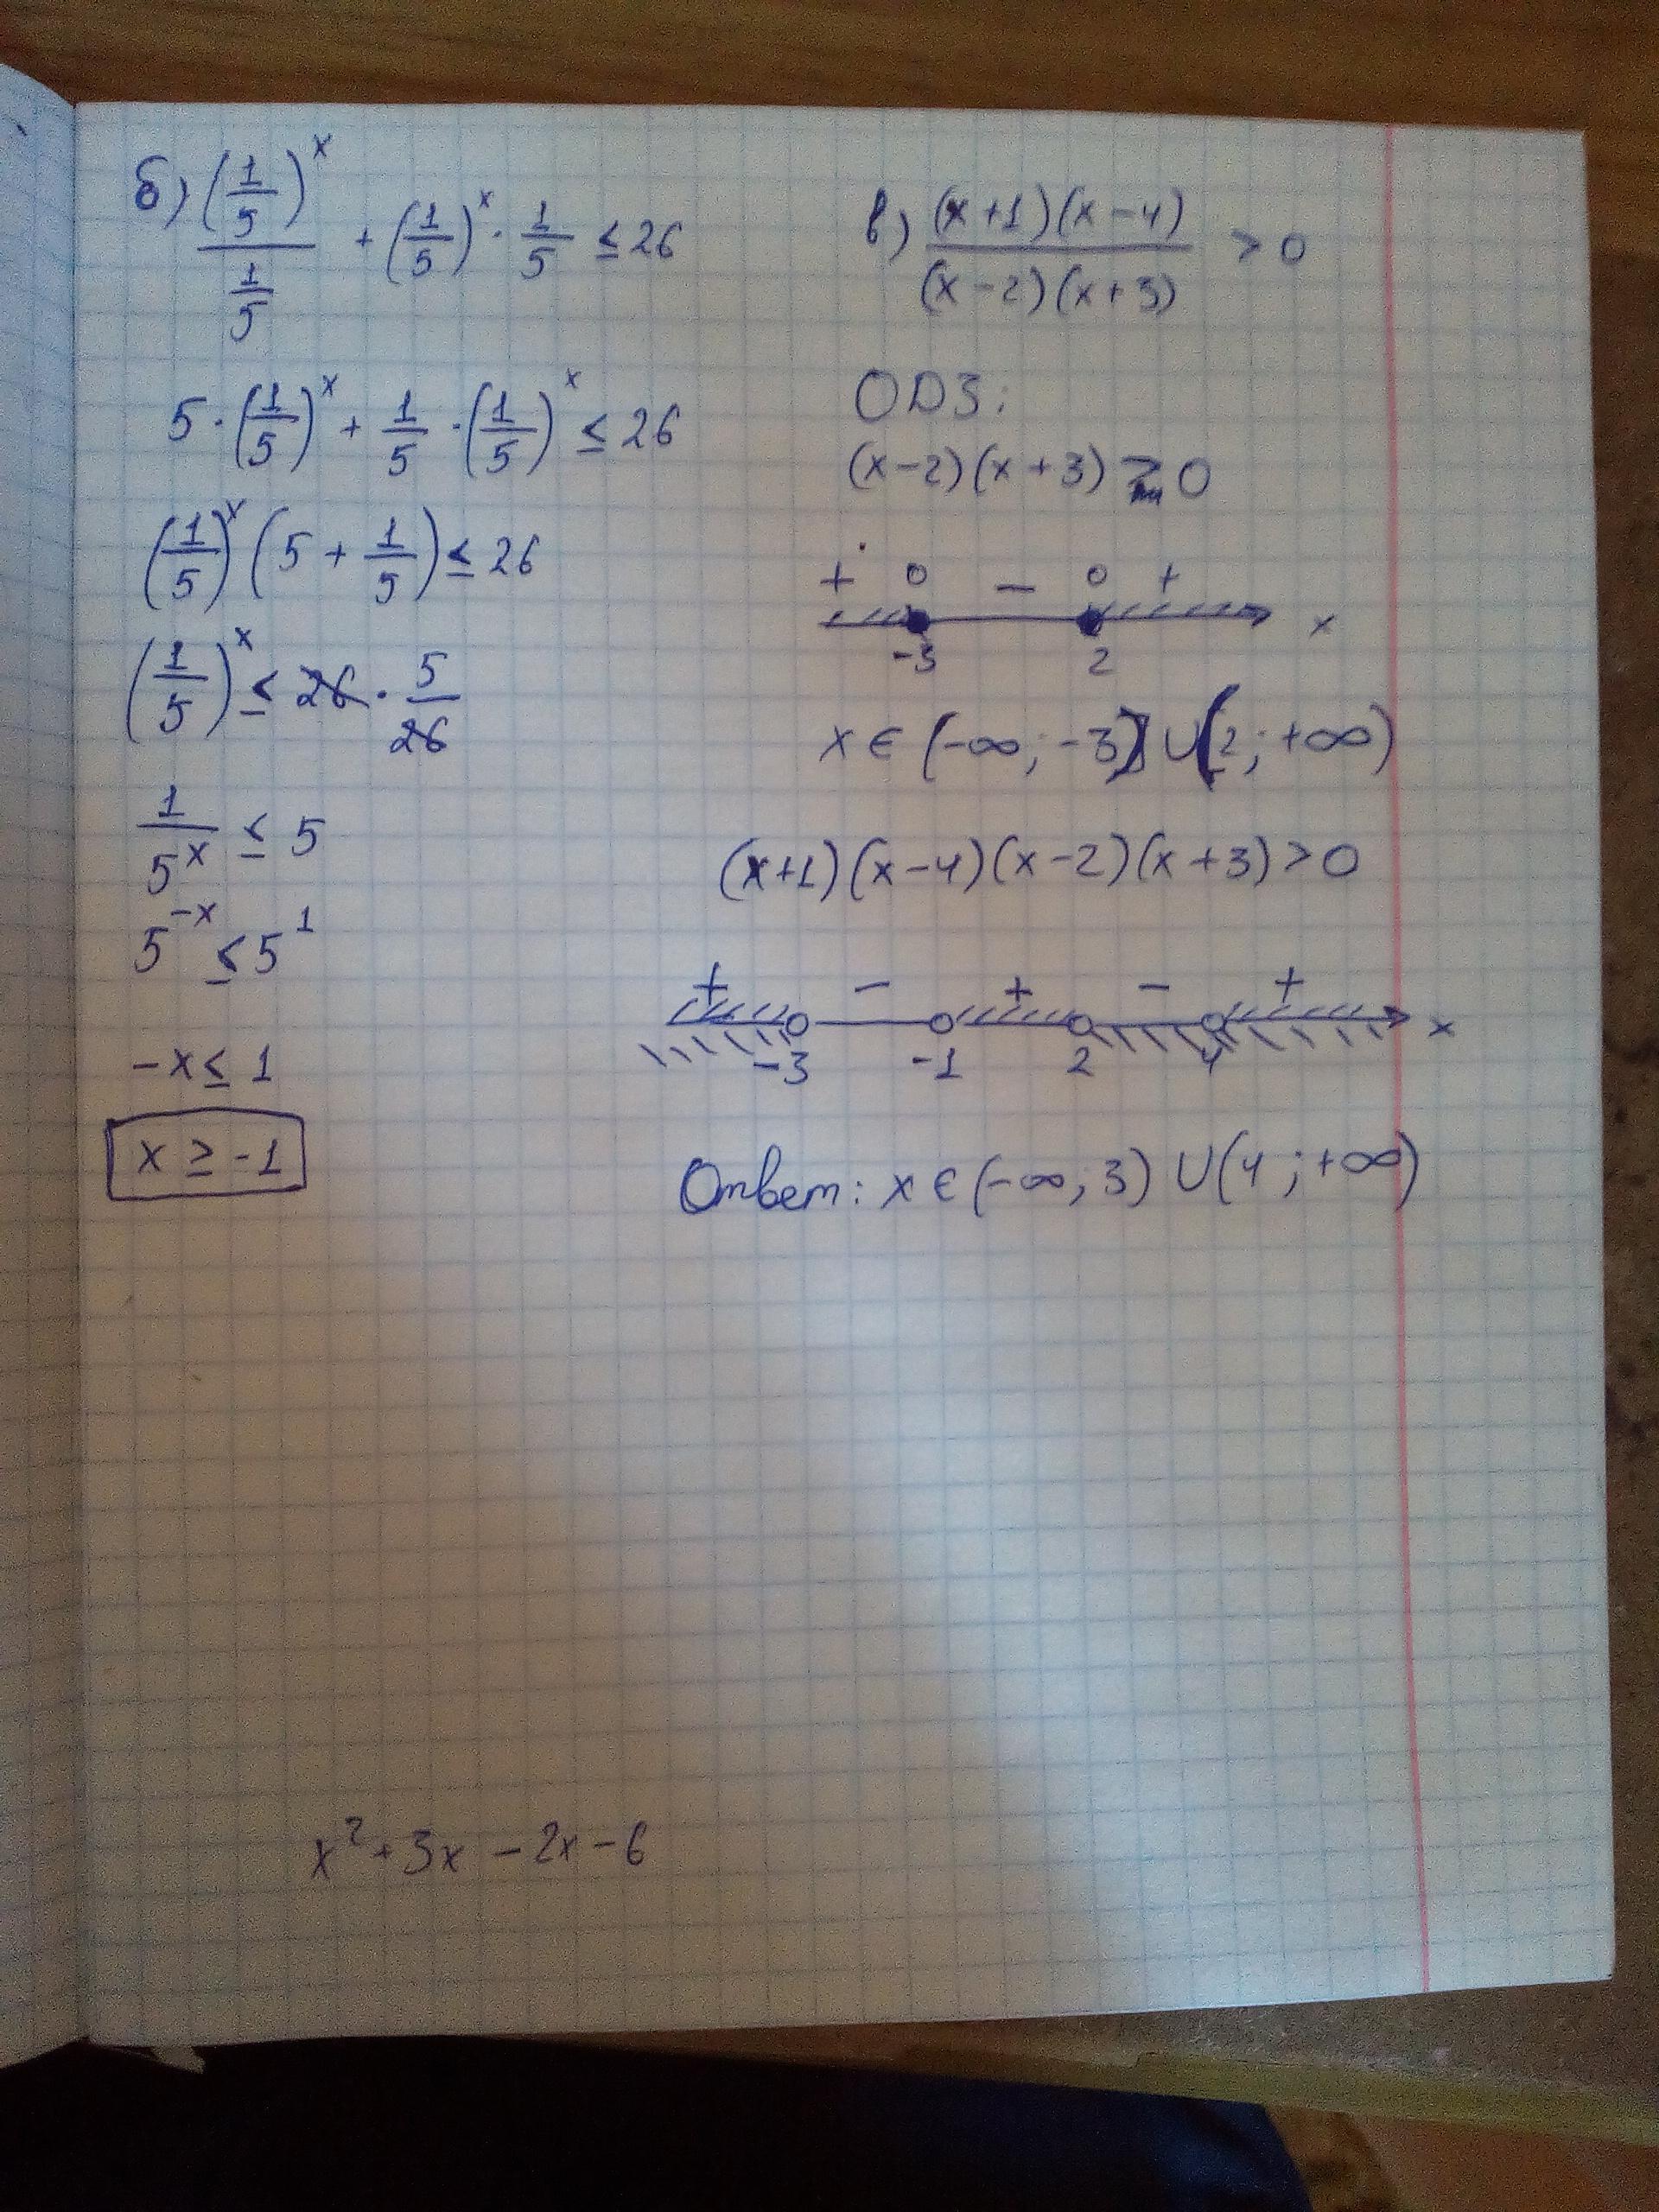 б) (1/5)^x / (1/5) + (1/5)^x · 1/5 ≤ 26
5 · (1/5)^x + 1/5 · (1/5)^x ≤ 26
(1/5)^x (5 + 1/5) ≤ 26
(1/5)^x ≤ 26 · 5/26
1/5^x ≤ 5
5^-x ≤ 5^1
-x ≤ 1
x ≥ -1
в) (x+1)(x-4) / (x-2)(x+3) > 0
ОДЗ:
(x-2)(x+3) ≥ 0
+ 0 − 0 +
-3 2 x
x ∈ (-∞; -3) ∪ (2; +∞)
(x+1)(x-4)(x-2)(x+3) > 0
+ − + − +
-3 -1 2 4 x
Ответ: x ∈ (-∞; 3) ∪ (4; +∞)
x² + 3x - 2x - 6